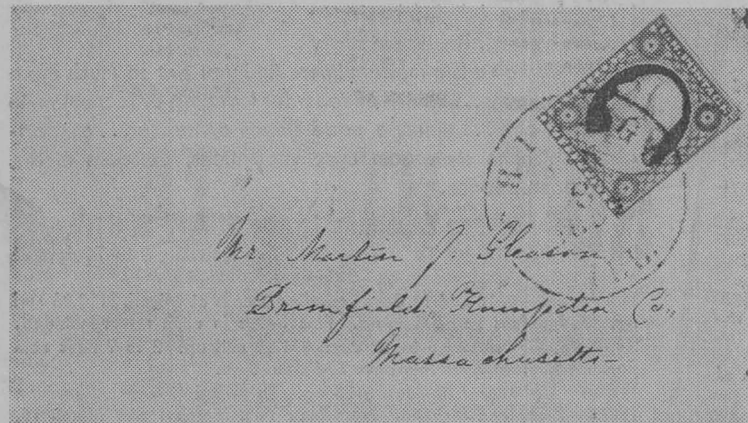 Mr. Martin J. Gleason
Brimfield, Hampden Co.,
Massachusetts